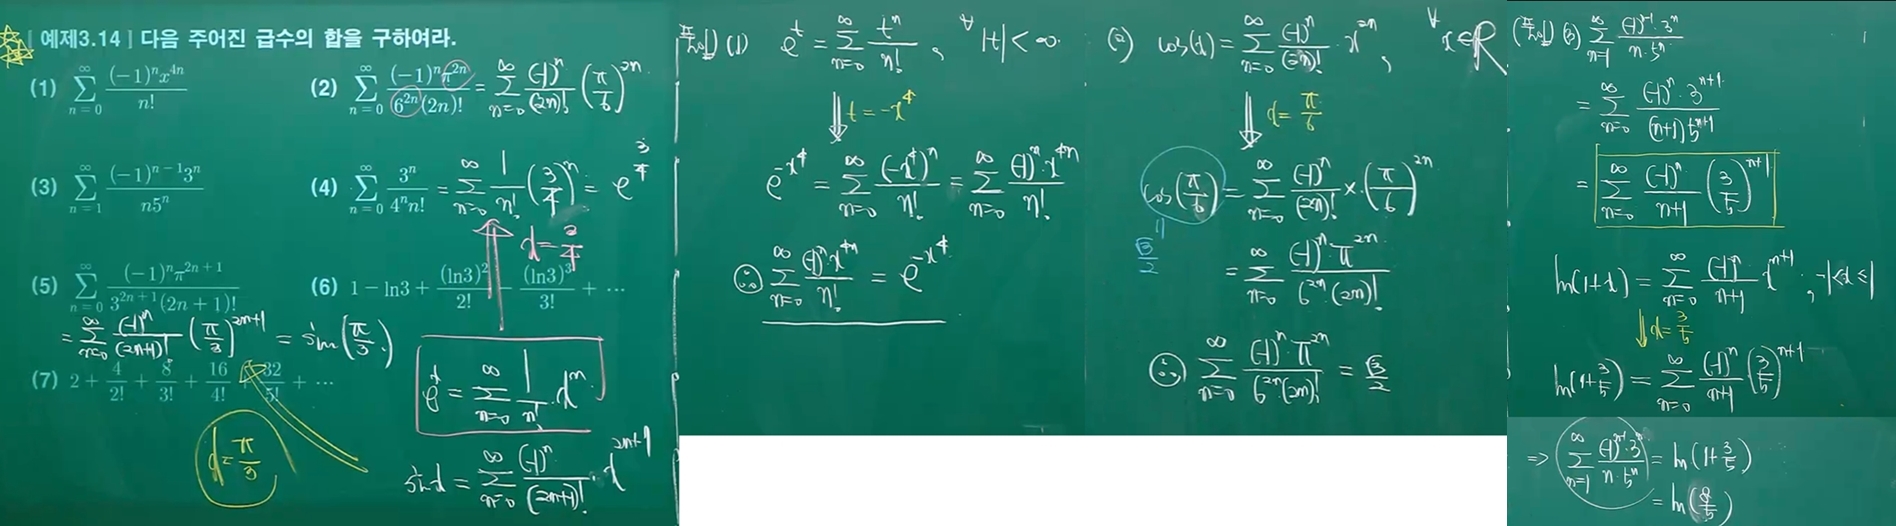 | 예제3.14 | 다음 주어진 급수의 합을 구하여라.
(1) \sum_{n=0}^{\infty} \frac{(-1)^n x^{4n}}{n!}
(2) \sum_{n=0}^{\infty} \frac{(-1)^n \pi^{2n}}{6^{2n}(2n)!} = \sum_{n=0}^{\infty} \frac{(-1)^n}{(2n)!} (\frac{\pi}{6})^{2n}
(3) \sum_{n=1}^{\infty} \frac{(-1)^{n-1} 3^n}{n5^n}
(4) \sum_{n=0}^{\infty} \frac{3^n}{4^n n!} = \sum_{n=0}^{\infty} \frac{1}{n!} (\frac{3}{4})^n = e^{\frac{3}{4}}
x = \frac{3}{4}
(5) \sum_{n=0}^{\infty} \frac{(-1)^n \pi^{2n+1}}{3^{2n+1}(2n+1)!}
= \sum_{n=0}^{\infty} \frac{(-1)^n}{(2n+1)!} (\frac{\pi}{3})^{2n+1} = sin(\frac{\pi}{3})
(6) 1 - ln3 + \frac{(ln3)^2}{2!} - \frac{(ln3)^3}{3!} + ⋯
(7) 2 + \frac{4}{2!} + \frac{8}{3!} + \frac{16}{4!} + \frac{32}{5!} + ⋯
= \sum_{n=0}^{\infty} \frac{1}{n!} x^n
x = \frac{\pi}{3}
sin x = \sum_{n=0}^{\infty} \frac{(-1)^n}{(2n+1)!} x^{2n+1}
풀이) (1) e^t = \sum_{n=0}^{\infty} \frac{t^n}{n!}, ∀|t| < ∞
t = -x^4
e^{-x^4} = \sum_{n=0}^{\infty} \frac{(-x^4)^n}{n!} = \sum_{n=0}^{\infty} \frac{(-1)^n x^{4n}}{n!}
∴ \sum_{n=0}^{\infty} \frac{(-1)^n x^{4n}}{n!} = e^{-x^4}
(2) cos(x) = \sum_{n=0}^{\infty} \frac{(-1)^n}{(2n)!} x^{2n}, ∀x∈R
x = \frac{\pi}{6}
cos(\frac{\pi}{6}) = \sum_{n=0}^{\infty} \frac{(-1)^n}{(2n)!} × (\frac{\pi}{6})^{2n}
\frac{\sqrt{3}}{2}
= \sum_{n=0}^{\infty} \frac{(-1)^n π^{2n}}{6^{2n} (2n)!}
∴ \sum_{n=0}^{\infty} \frac{(-1)^n π^{2n}}{6^{2n} (2n)!} = \frac{\sqrt{3}}{2}
(풀이) (3) \sum_{n=1}^{\infty} \frac{(-1)^{n-1} · 3^n}{n · 5^n}
= \sum_{n=0}^{\infty} \frac{(-1)^n · 3^{n+1}}{(n+1) 5^{n+1}}
= \sum_{n=0}^{\infty} \frac{(-1)^n}{n+1} (\frac{3}{5})^{n+1}
ln(1+x) = \sum_{n=0}^{\infty} \frac{(-1)^n}{n+1} x^{n+1},
x = \frac{3}{5}
ln(1+\frac{3}{5}) = \sum_{n=0}^{\infty} \frac{(-1)^n}{n+1} (\frac{3}{5})^{n+1}
⇒ \sum_{n=1}^{\infty} \frac{(-1)^{n-1} · 3^n}{n · 5^n} = ln(1+\frac{3}{5})
= ln(\frac{8}{5})